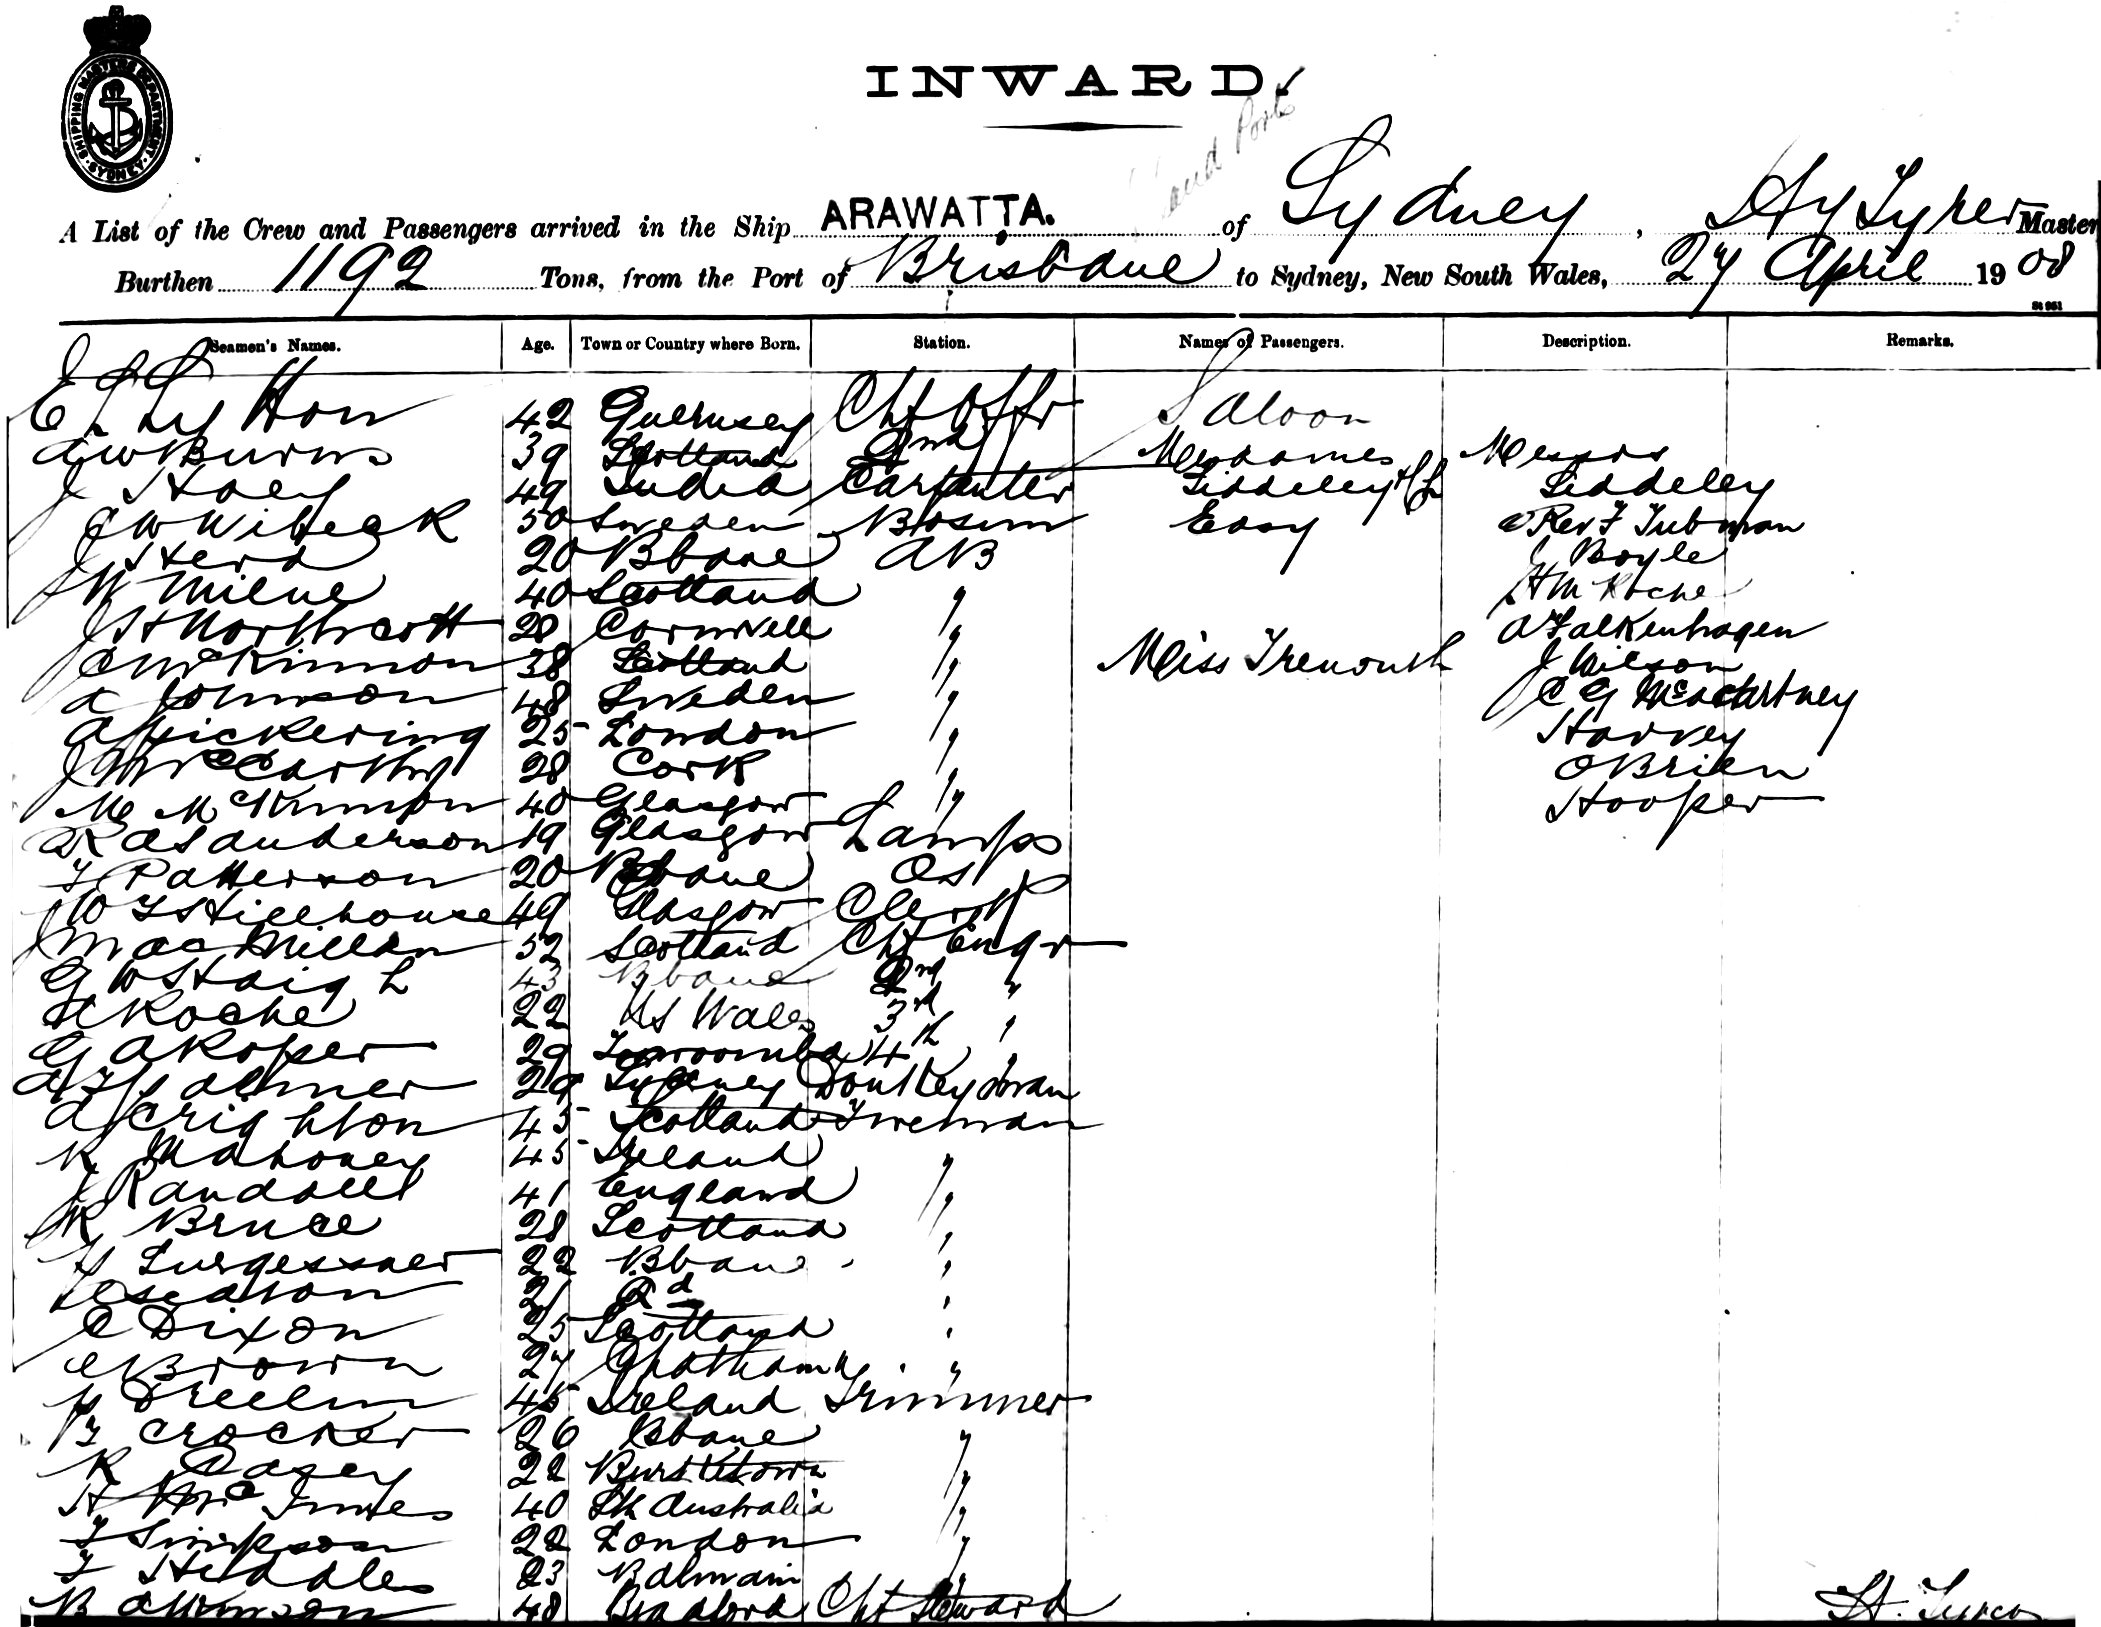 SHIPPING MASTERS DEPARTMENT · SYDNEY ·
INWARD.
and Ports
A List of the Crew and Passengers arrived in the Ship ARAWATTA. of Sydney, Hy Tyrer Master
Burthen 1192 Tons, from the Port of Brisbane to Sydney, New South Wales, 27 April 1908
St 951
Seamen's Names. Age. Town or Country where Born. Station. Names of Passengers. Description. Remarks.
E L Hon 42 Guernsey Chf Offr Saloon
A W Burns 39 Scotland 2nd Mesdames Messrs
J Hoey 49 India Carpenter Liddeley Liddeley
C W Wibeck 50 Sweden Bosun Easy Rev F Tubman
J Herd 20 Bbane AB J Boyle
W Milne 40 Scotland " H M Roche
J H Northcott 28 Cornwell " A Falkenhagen
C McKinnon 38 Scotland " Miss Tremouth J Wilson
A Johnson 48 Sweden " C G McCartney
A Pickering 25 London " Harvey
J McCarthy 28 Cork " OBrien
M McKinnon 40 Glasgow " Hooper
R A Sanderson 19 Glasgow Lamps
F Patterson 20 Bbane OS
W F Hillhouse 49 Glasgow Clerk
J MacMillan 52 Scotland Chf Engr
G W Haig 43 Bbane 2nd "
H Roche 22 N S Wales 3rd "
G A Roper 29 Toowoomba 4th "
A F Palmer 29 Sydney Donkeyman
A Crighton 45 Scotland Fireman
K Mahoney 45 Ireland "
J Randall 41 England "
R Bruce 28 Scotland "
Surgessner 22 Bbane "
Seaton 21 Qd "
C Dixon 25 Scotland "
C Brown 27 Chatham "
P 45 Ireland Trimmer
F Crocker 26 Bbane "
K Casey 22 Burketown "
H McInnes 40 Sth Australia "
F Simpson 22 London "
F Hiddles 23 Balmain "
B Atkinson 48 Bradford Chf Steward